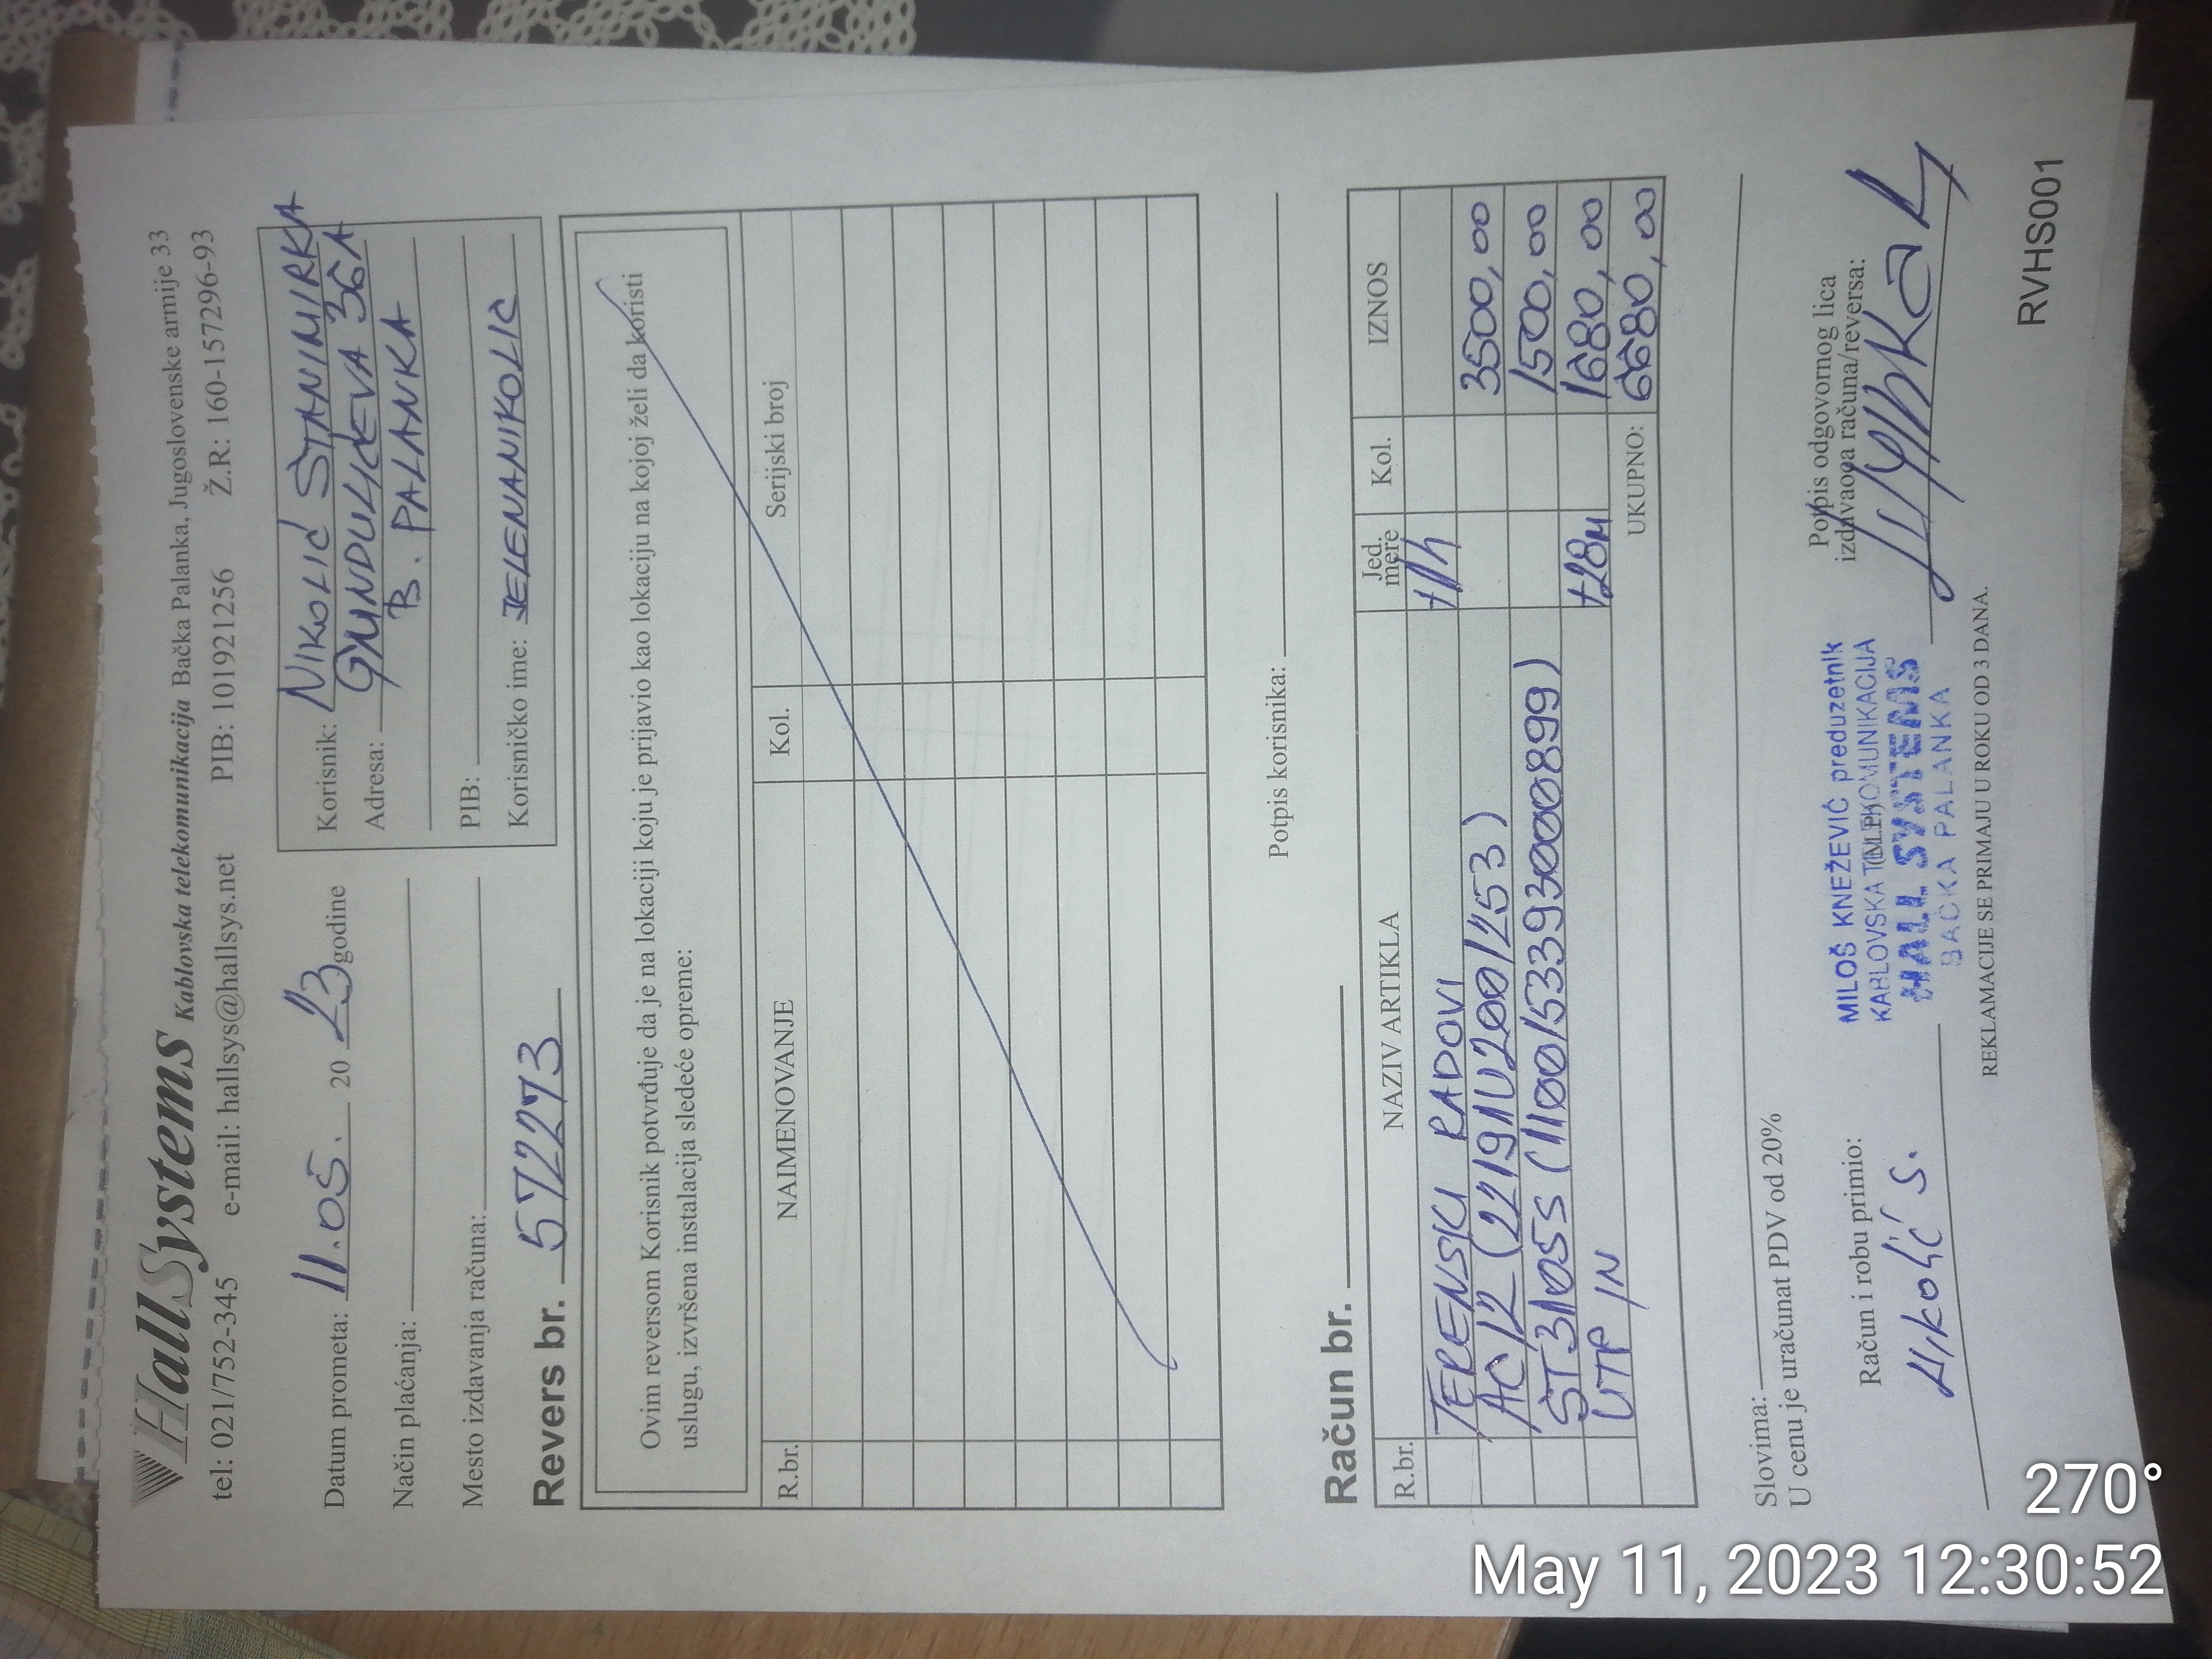 HallSystems Kablovska telekomunikacija Bačka Palanka, Jugoslovenske armije 33
tel: 021/752-345 e-mail: hallsys@hallsys.net PIB: 101921256 Ž.R.: 160-157296-93
Datum prometa: 11.05. 20 23 godine
Način plaćanja:
Mesto izdavanja računa:
Korisnik: NIKOLIĆ STANIMIRKA
Adresa: GUNDULIĆEVA 36A
B. PALANKA
PIB:
Korisničko ime: JELENANIKOLIC
Revers br. 572273
Ovim reversom Korisnik potvrđuje da je na lokaciji koju je prijavio kao lokaciju na kojoj želi da koristi
uslugu, izvršena instalacija sledeće opreme:
R.br. NAIMENOVANJE Kol. Serijski broj
Potpis korisnika:
Račun br.
R.br. NAZIV ARTIKLA Jed. mere Kol. IZNOS
TERENSKI RADOVI 1/h 3500,00
AC12 (22191U2001453) 1500,00
ST3105S (1100153393000899)
UTP IN +28m 1680,00
UKUPNO: 6680,00
Slovima:
U cenu je uračunat PDV od 20%
Račun i robu primio:
Nikolić S.
MILOŠ KNEŽEVIĆ preduzetnik
KABLOVSKA TELEKOMUNIKACIJA
HALL SYSTEMS
BAČKA PALANKA
Potpis odgovornog lica
izdavaoca računa/reversa:
REKLAMACIJE SE PRIMAJU U ROKU OD 3 DANA.
RVHS001
270°
May 11, 2023 12:30:52